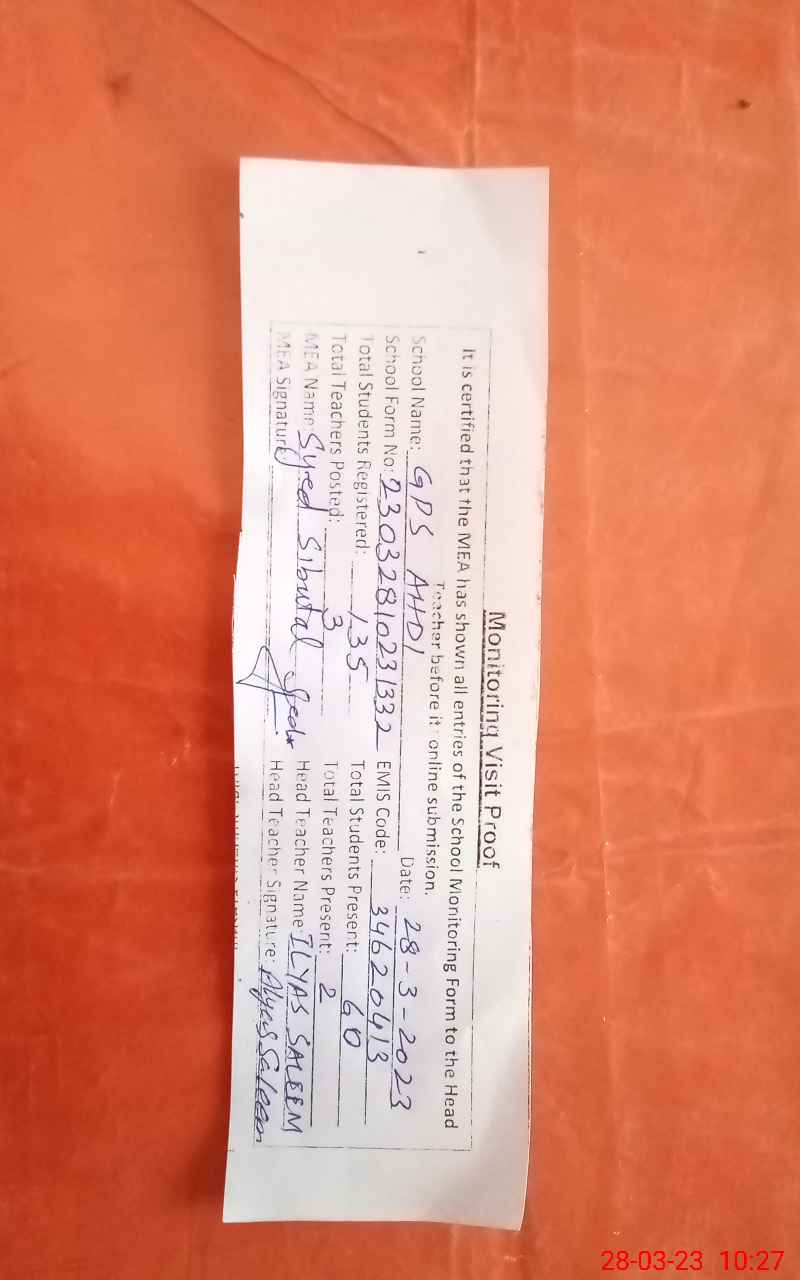 Monitoring Visit Proof
It is certified that the MEA has shown all entries of the School Monitoring Form to the Head
Teacher before it online submission.
School Name: GPS AHDI Date: 28-3-2023
School Form No: 23032810231332 EMIS Code: 34620413
Total Students Registered: 135 Total Students Present: 60
Total Teachers Posted: 3 Total Teachers Present: 2
MEA Name: Syed Head Teacher Name: ILYAS SALEEM
MEA Signature Head Teacher Signature: Ilyas Saleem
28-03-23 10:27